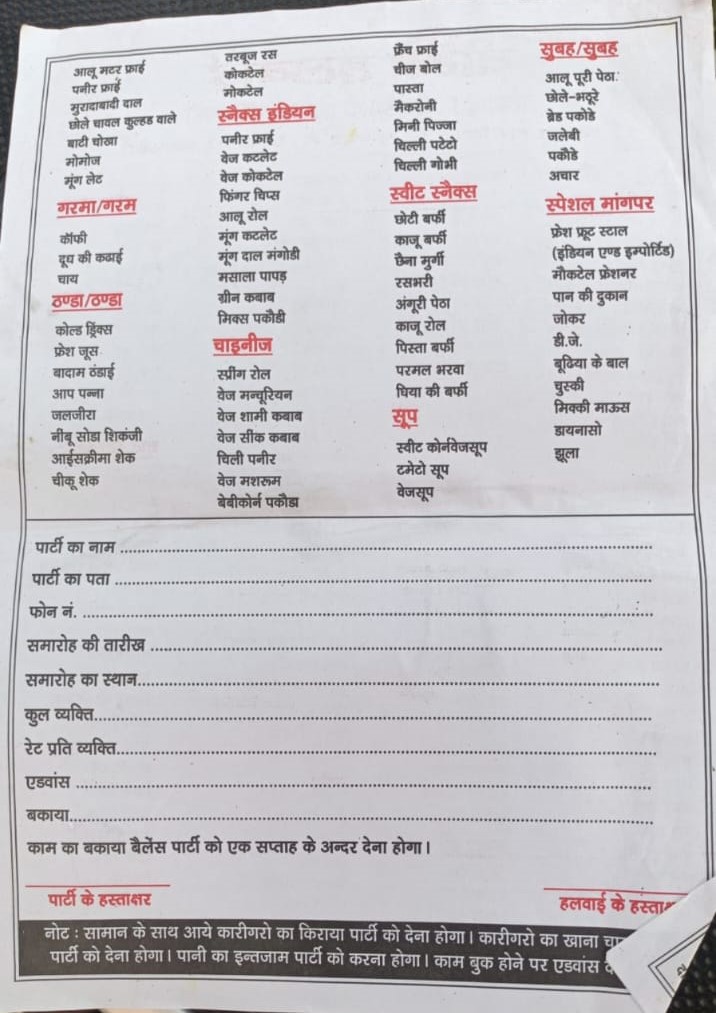 आलू मटर फ्राई
पनीर फ्राई
मुरादाबादी दाल
छोले चावल कुल्हड वाले
बाटी चोखा
मोमोज
मूंग लेट
गरमा/गरम
कॉफी
दूध की कढाई
चाय
ठण्डा/ठण्डा
कोल्ड ड्रिंक्स
फ्रेश जूस
बादाम ठंडाई
आप पन्ना
जलजीरा
नीबू सोडा शिकंजी
आईसक्रीमा शेक
चीकू शेक
तरबूज रस
कोकटेल
मोकटेल
स्नैक्स इंडियन
पनीर फ्राई
वेज कटलेट
वेज कोकटेल
फिंगर चिप्स
आलू रोल
मूंग कटलेट
मूंग दाल मंगोडी
मसाला पापड़
ग्रीन कबाब
मिक्स पकौडी
चाइनीज
स्प्रींग रोल
वेज मन्चूरियन
वेज शामी कबाब
वेज सींक कबाब
चिली पनीर
वेज मशरूम
बेबीकोर्न पकौडा
फ्रैंच फ्राई
चीज बोल
पास्ता
मैकरोनी
मिनी पिज्जा
चिल्ली पटेटो
चिल्ली गोभी
स्वीट स्नैक्स
छोटी बर्फी
काजू बर्फी
छैना मुर्गी
रसभरी
अंगूरी पेठा
काजू रोल
पिस्ता बर्फी
परमल भरवा
घिया की बर्फी
सूप
स्वीट कोर्नवेजसूप
टमेटो सूप
वेजसूप
सुबह/सुबह
आलू पूरी पेठा
छोले-भठूरे
ब्रेड पकोडे
जलेबी
पकौडे
अचार
स्पेशल मांगपर
फ्रेश फ्रूट स्टाल
(इंडियन एण्ड इम्पोर्टिड)
मौकटेल फ्रेशनर
पान की दुकान
जोकर
डी.जे.
बूढिया के बाल
चुस्की
मिक्की माऊस
डायनासो
झूला
पार्टी का नाम
पार्टी का पता
फोन नं.
समारोह की तारीख
समारोह का स्थान
कुल व्यक्ति
रेट प्रति व्यक्ति
एडवांस
बकाया
काम का बकाया बैलेंस पार्टी को एक सप्ताह के अन्दर देना होगा।
पार्टी के हस्ताक्षर
हलवाई के
नोट : सामान के साथ आये कारीगरो का किराया पार्टी को देना होगा। कारीगरो का खाना
पार्टी को देना होगा। पानी का इन्तजाम पार्टी को करना होगा। काम बुक होने पर एडवांस